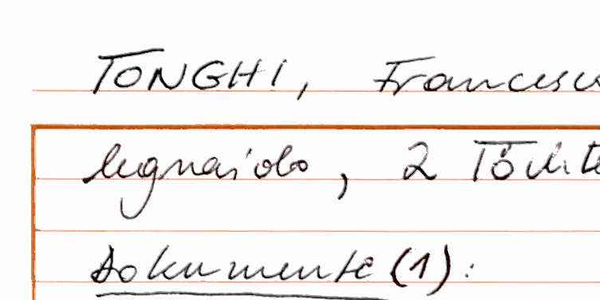 TONGHI, Francesco
legnaiolo, 2 Töchte
Dokumente (1):